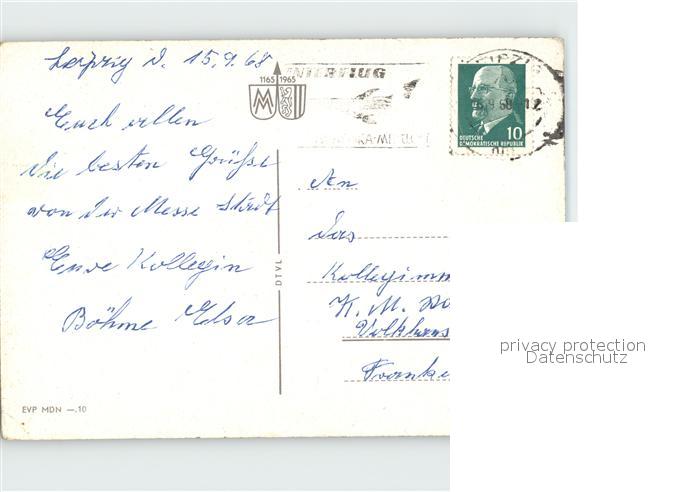 Leipzig d. 15.9.68
Euch allen
die besten Grüße
von der Messe Stadt
Eure Kollegin
Böhme Elsa
1165 1965
MM
INTERFLUG
LEIPZIG
DEUTSCHE
DEMOKRATISCHE REPUBLIK
10
An
Das
Kollegium
K. M.
Frank
DTVL
EVP MDN —.10
privacy protection
Datenschutz